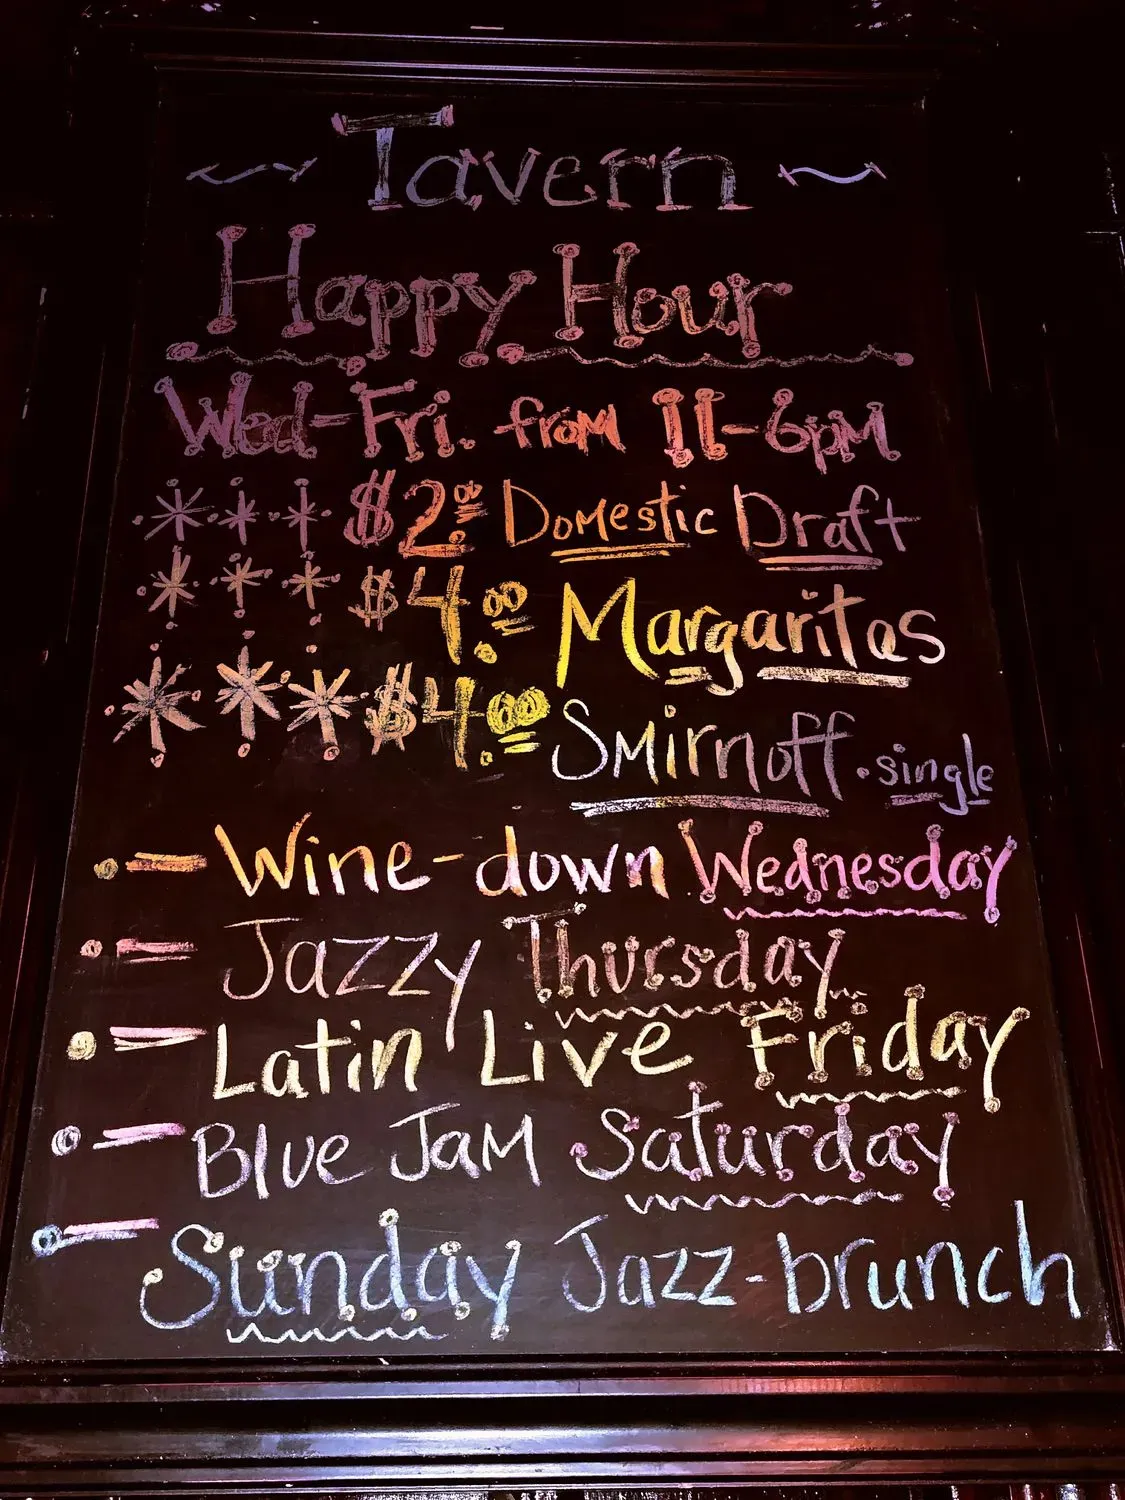 ~ Tavern ~
Happy Hour
Wed-Fri. from 11-6pm
*** $2.00 Domestic Draft
*** $4.00 Margaritas
*** $4.00 Smirnoff. single
•- Wine-down Wednesday
•- Jazzy Thursday
•- Latin Live Friday
•- Blue Jam Saturday
•- Sunday Jazz-brunch